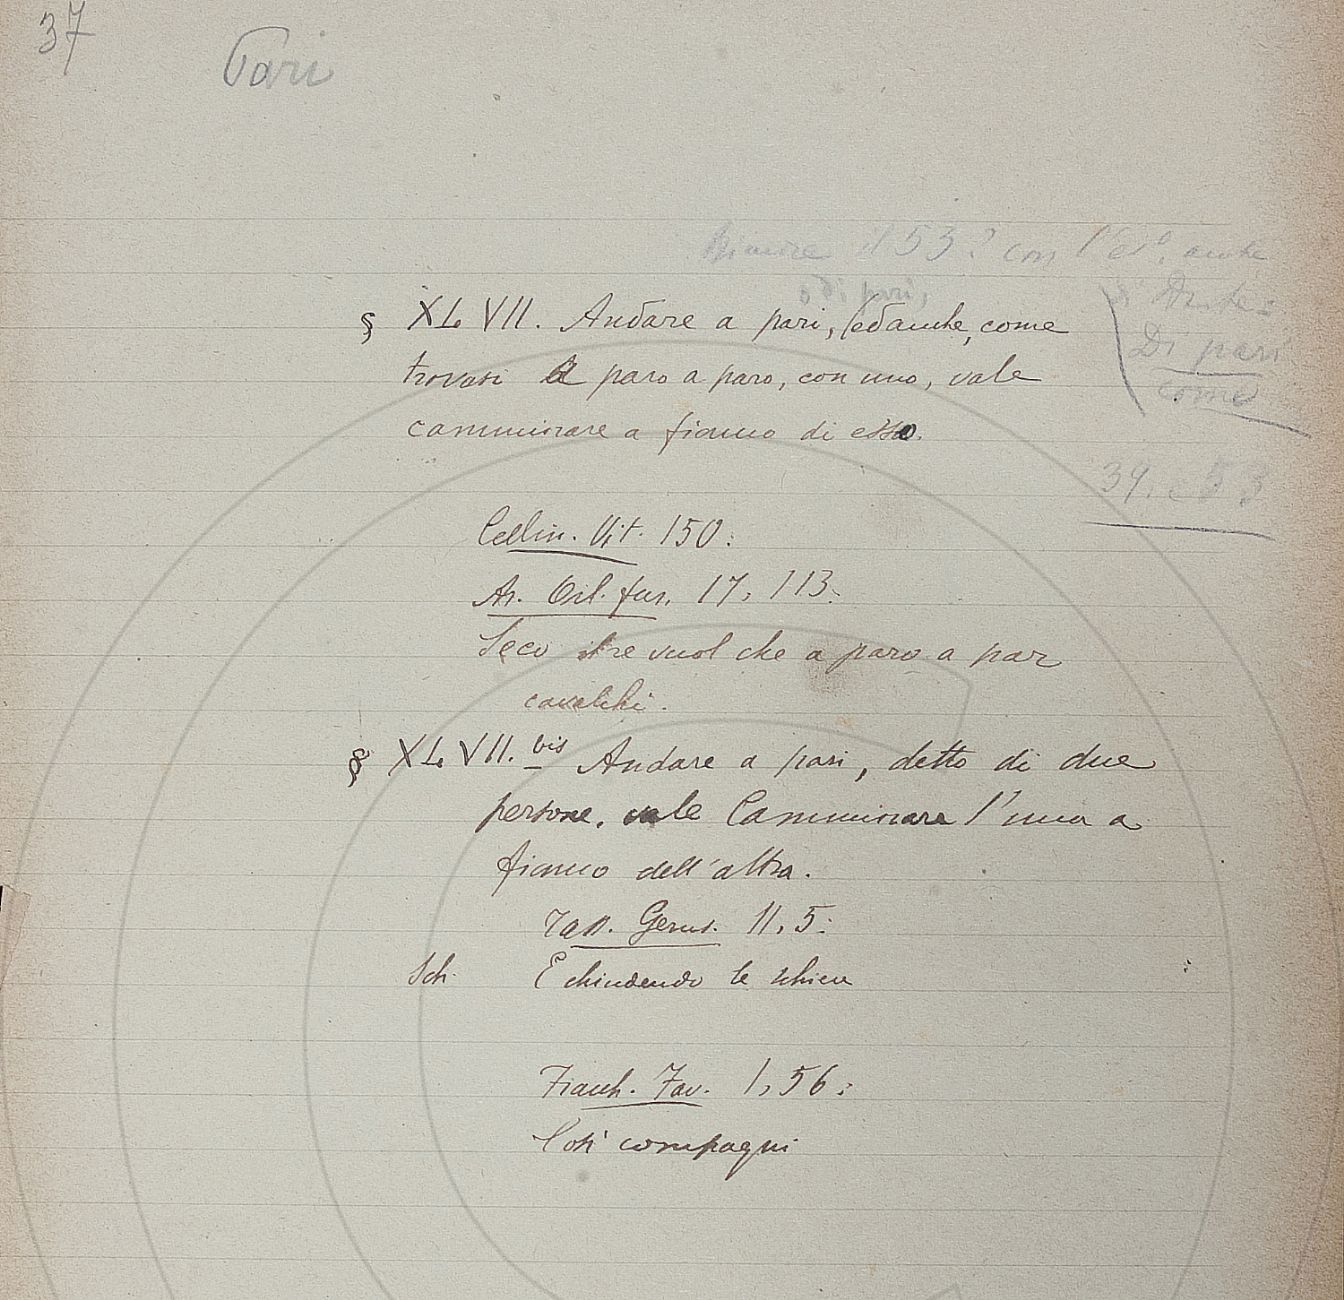 37
Pari
il 53? con l'es.º anche
o di pari,
Dante:
Di pari
come
§ XLVII. Andare a pari, (ed anche, come
trovasi A paro a paro, con uno, vale
camminare a fianco di esso.
39. e 53
Cellin. Vit. 150:
Ar. Orl. fur. 17, 113:
Seco il re vuol che a paro a par
cavalchi.
§ XLVII. bis Andare a pari, detto di due
persone, vale Camminare l'una a
fianco dell'altra.
Tass. Gerus. 11, 5:
Sch. E chiudendo le schiere
Franch. Fav. 1, 56:
Così compagni